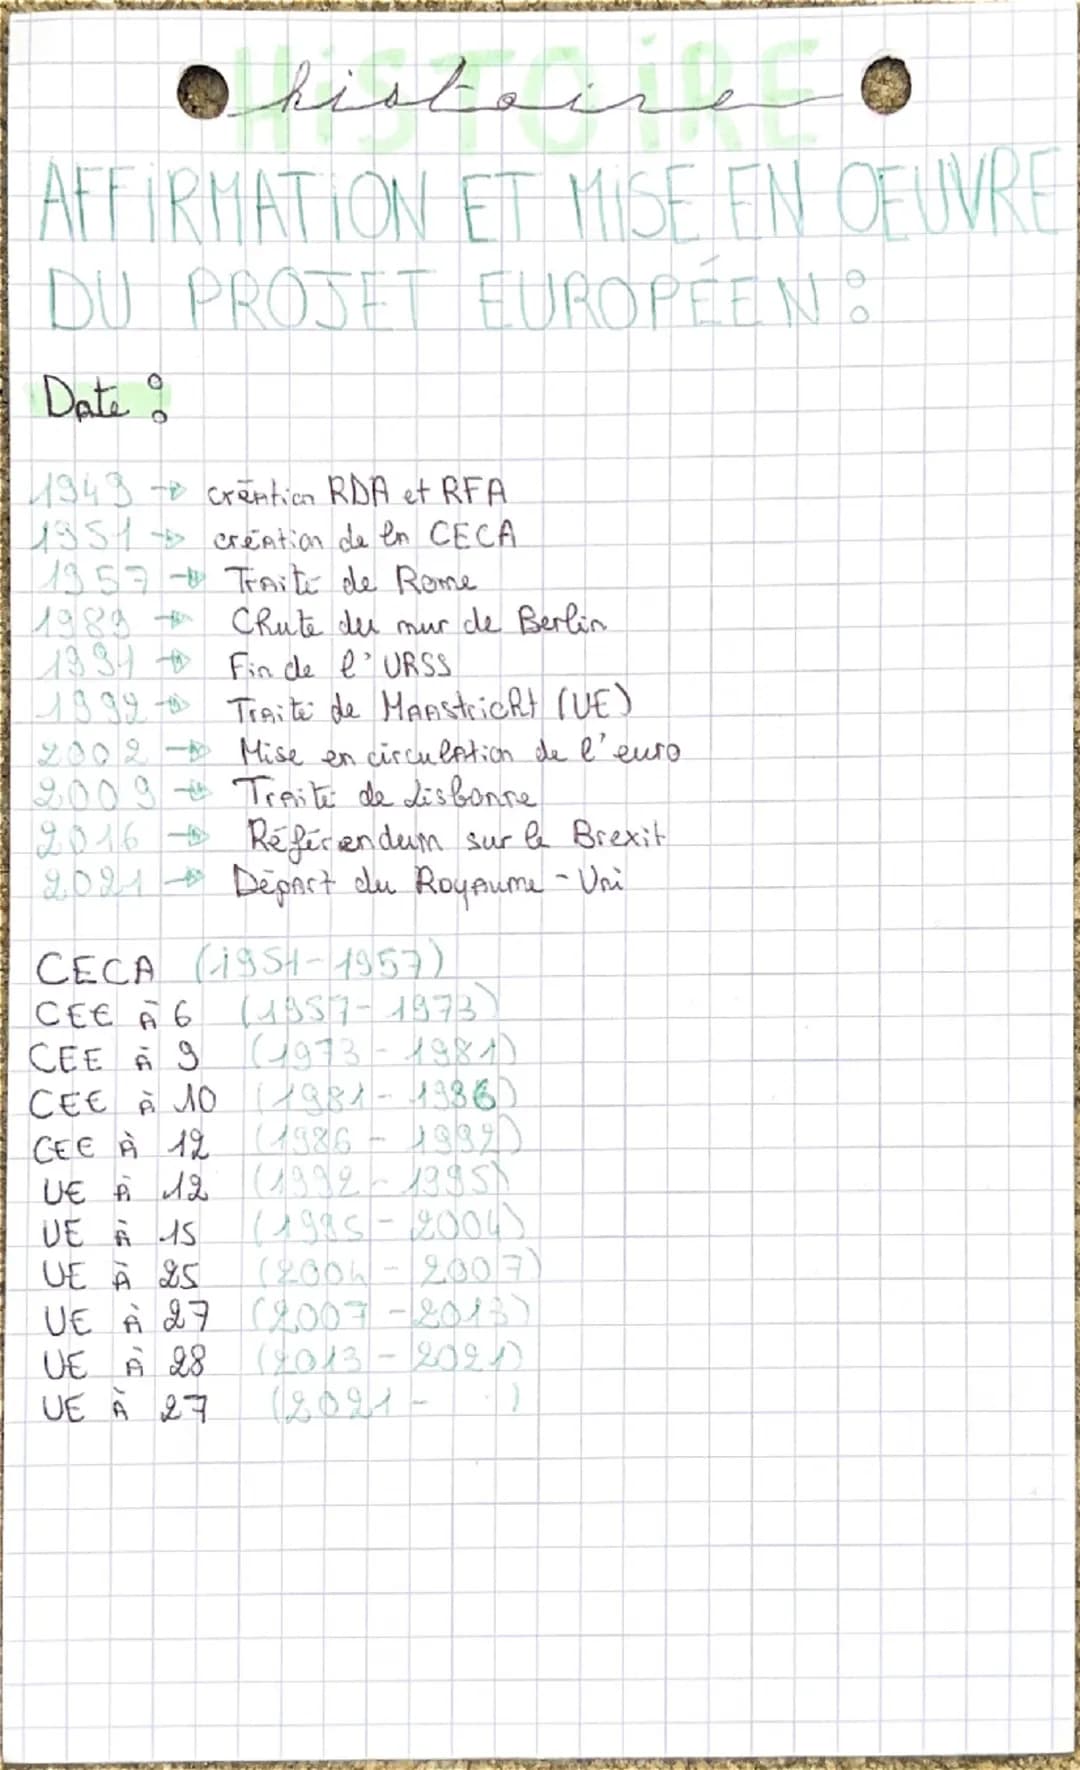 HiSTOiRE
histoire
AFFiRMATiON ET MiSE EN OEUVRE
DU PROJET EUROPÉEN :
Date :
1949 → création RDA et RFA
1951 → création de la CECA
1957 → Traité de Rome
1989 → Chute du mur de Berlin
1991 → Fin de l'URSS
1992 → Traité de Maastricht (UE)
2002 → Mise en circulation de l'euro
2009 → Traité de Lisbonne
2016 → Référendum sur le Brexit
2021 → Départ du Royaume-Uni
CECA (1951-1957)
CEE À 6 (1957-1973)
CEE À 9 (1973-1981)
CEE À 10 (1981-1986)
CEE À 12 (1986-1992)
UE À 12 (1992-1995)
UE À 15 (1995-2004)
UE À 25 (2004-2007)
UE À 27 (2007-2013)
UE À 28 (2013-2021)
UE À 27 (2021- )